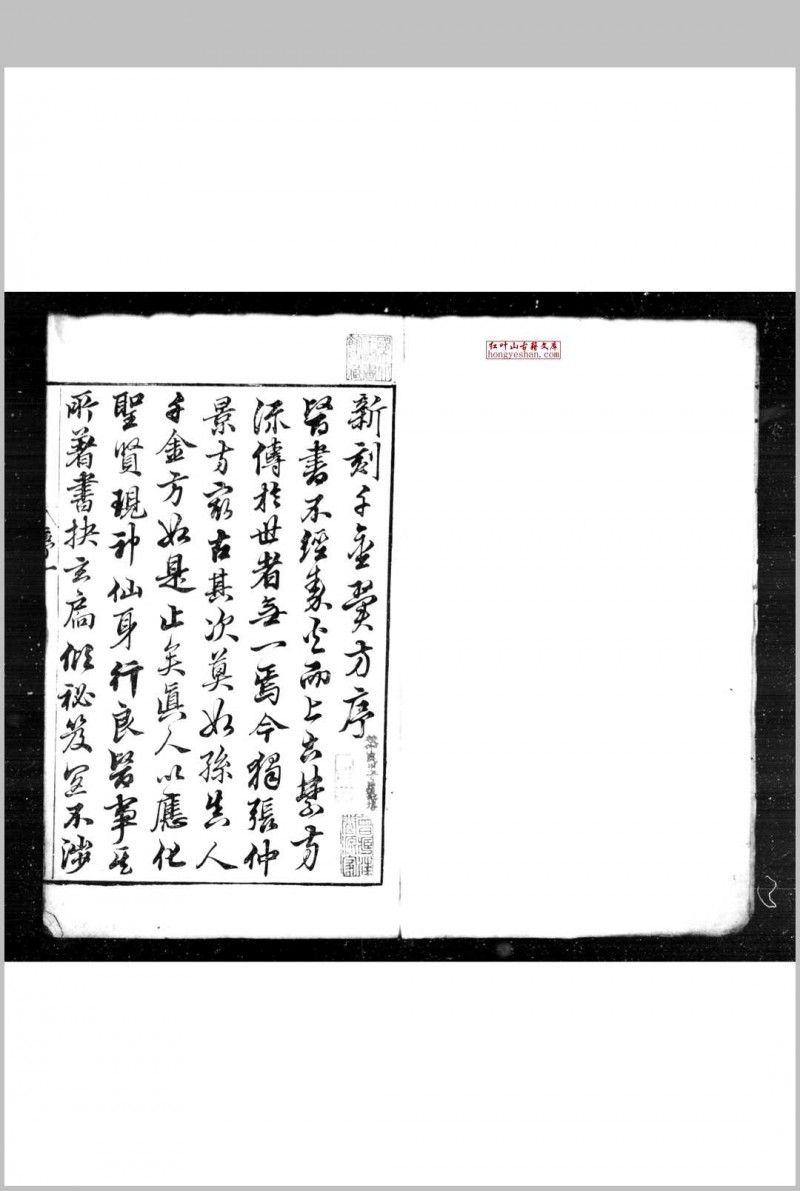 红叶山古籍文库
hongyeshan.com
新刻千金翼方序
醫書不經秦火而上古禁方
流傳於世者無一焉今獨張仲
景方最古其次莫如孫真人
千金方如是止矣真人以應化
聖賢現神仙身行良醫事其
所著書抉玄扃候祕笈罔不涉
序一